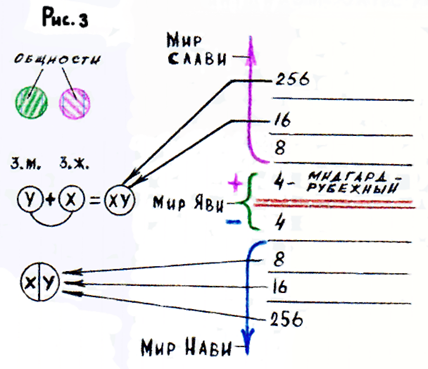 Рис. 3
Мир
Слави
общности
256
16
8
з.м. з.ж.
Y + X = XY
Мир Яви
+
4 - Мидгард -
рубежный
-
4
8
X Y
16
256
Мир Нави